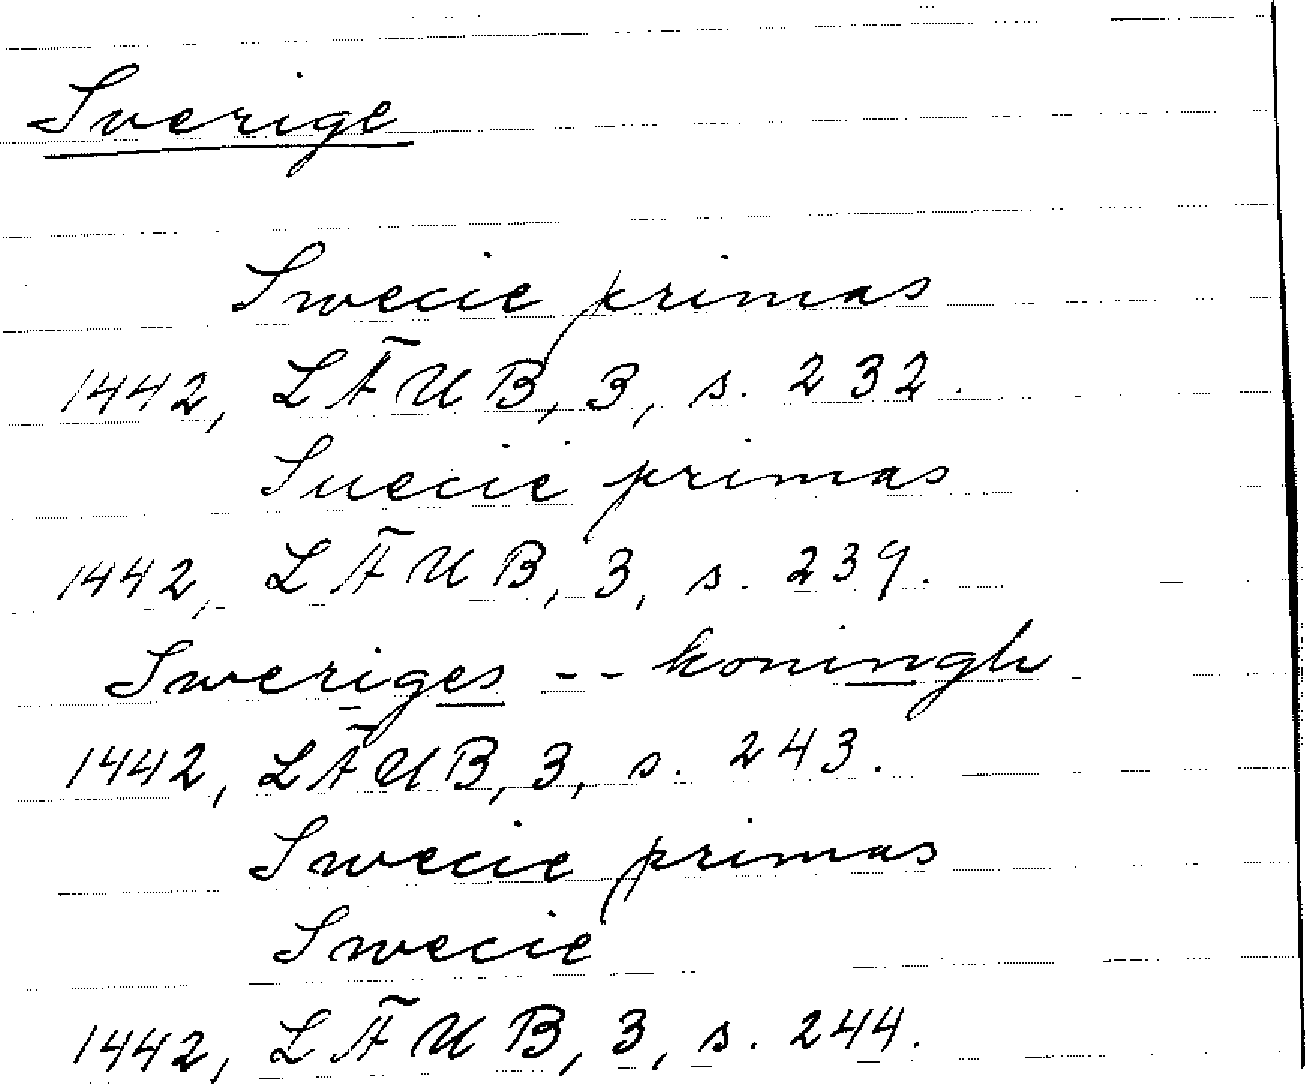 Sverige
Swecie primas
1442, LÄUB, 3, s. 232.
Suecie primas
1442, LÄUB, 3, s. 239.
Sweriges -- koningh
1442, LÄUB, 3, s. 243.
Swecie primas
Swecie
1442, LÄUB, 3, s. 244.